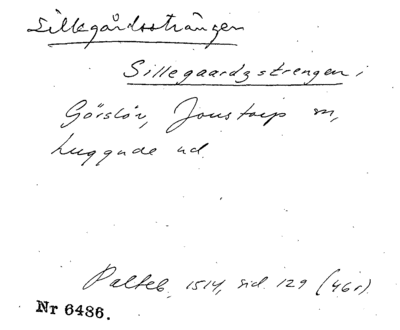 Sillegårdssträngen
Sillegaardzstrengen i
Görslöv, Jonstorp sn,
Luggude hd
Palteb. 1514, sid. 129 (46r).
Nr 6486.